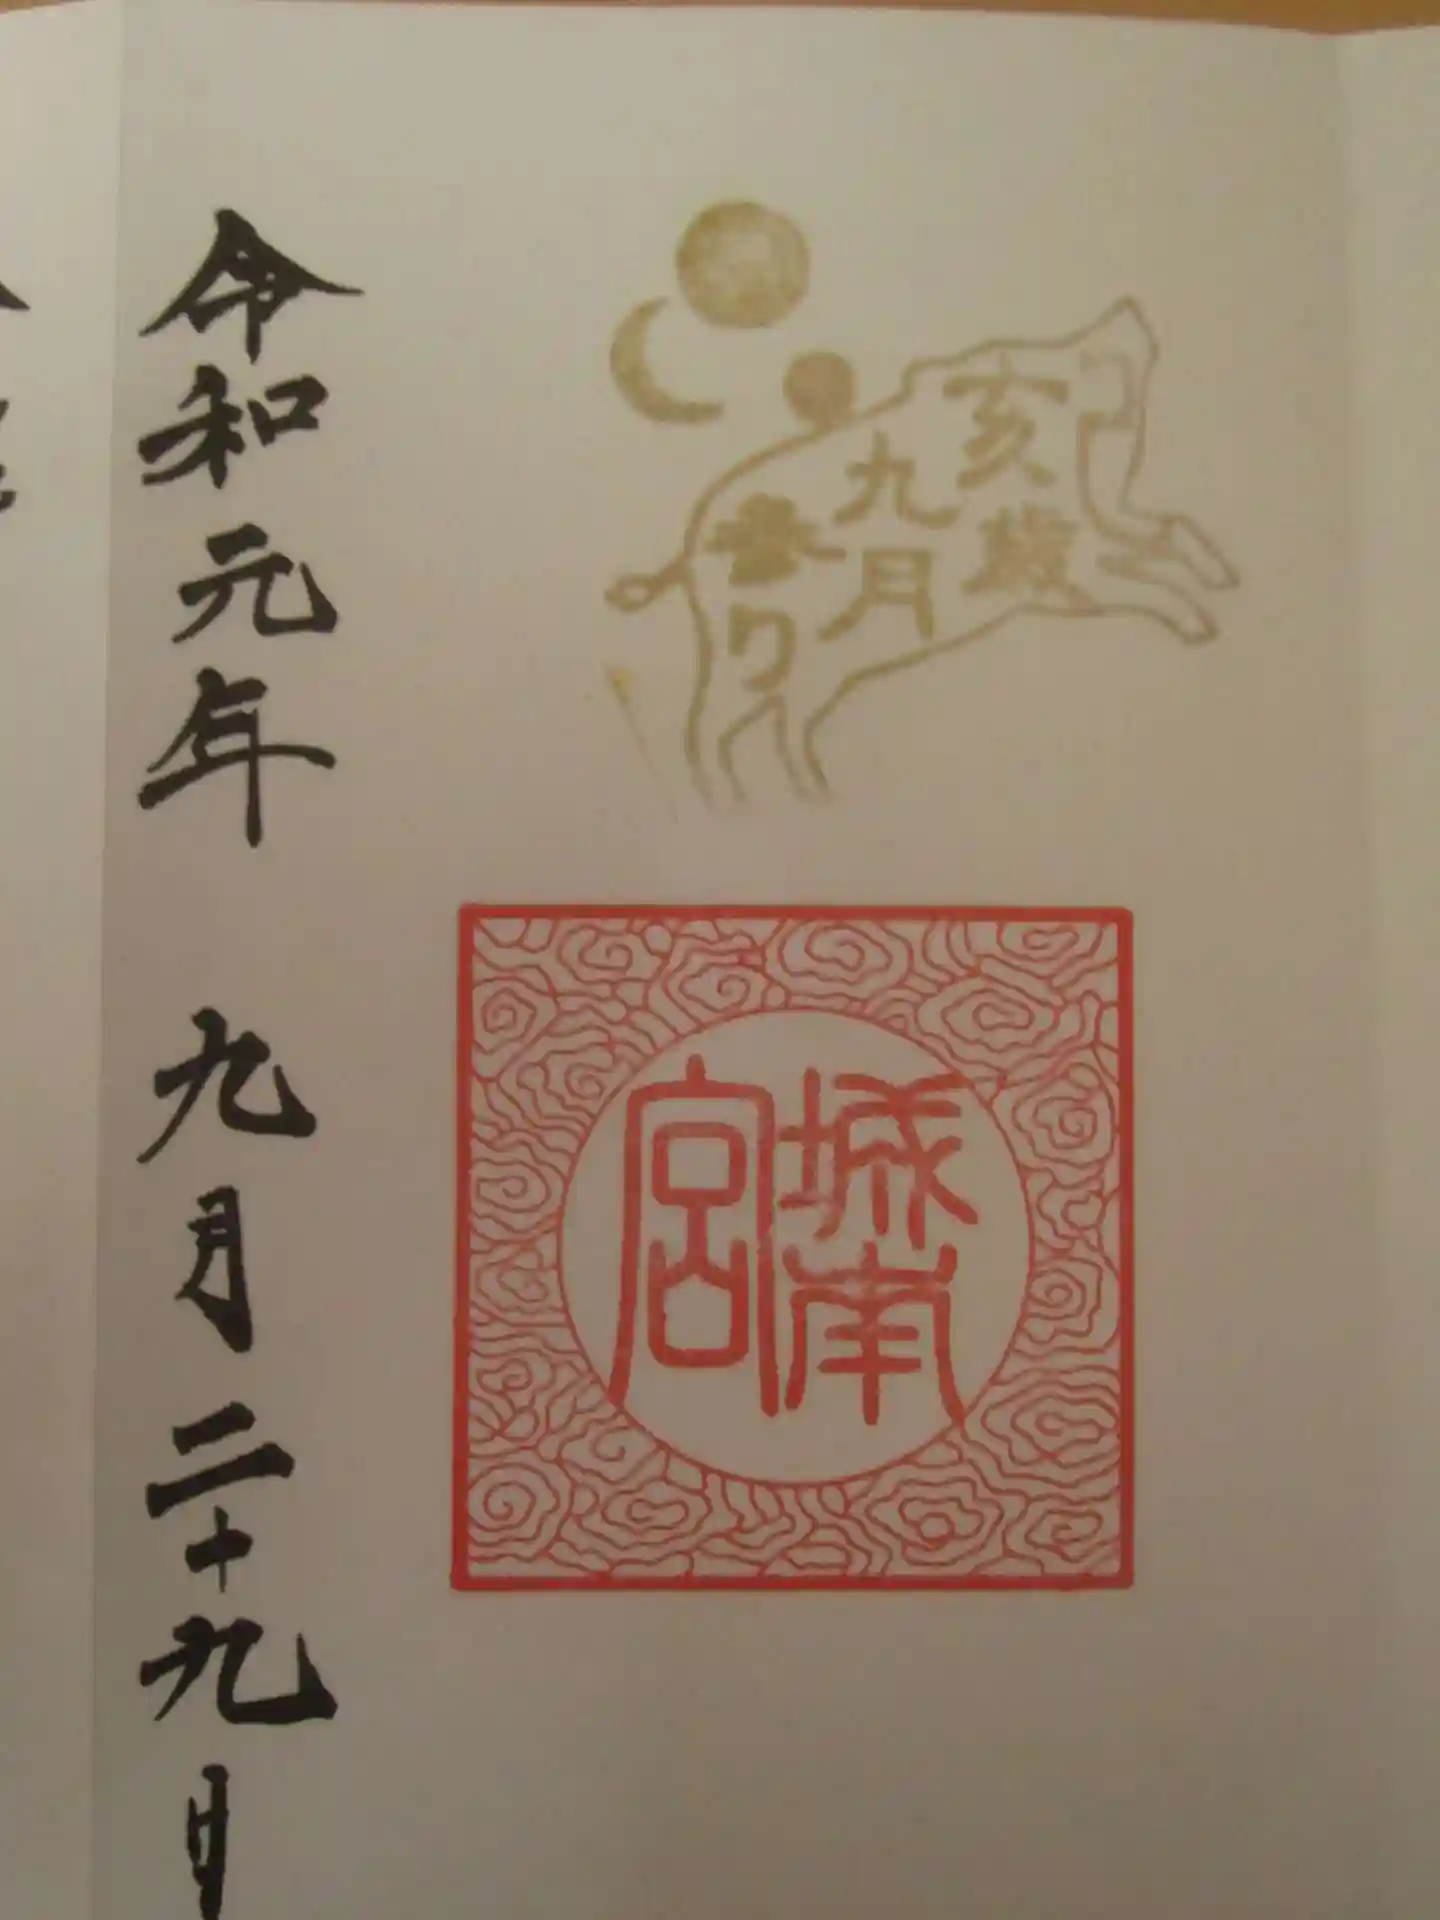 亥歳
九月
参り
城南
宮
令和元年 九月二十九日